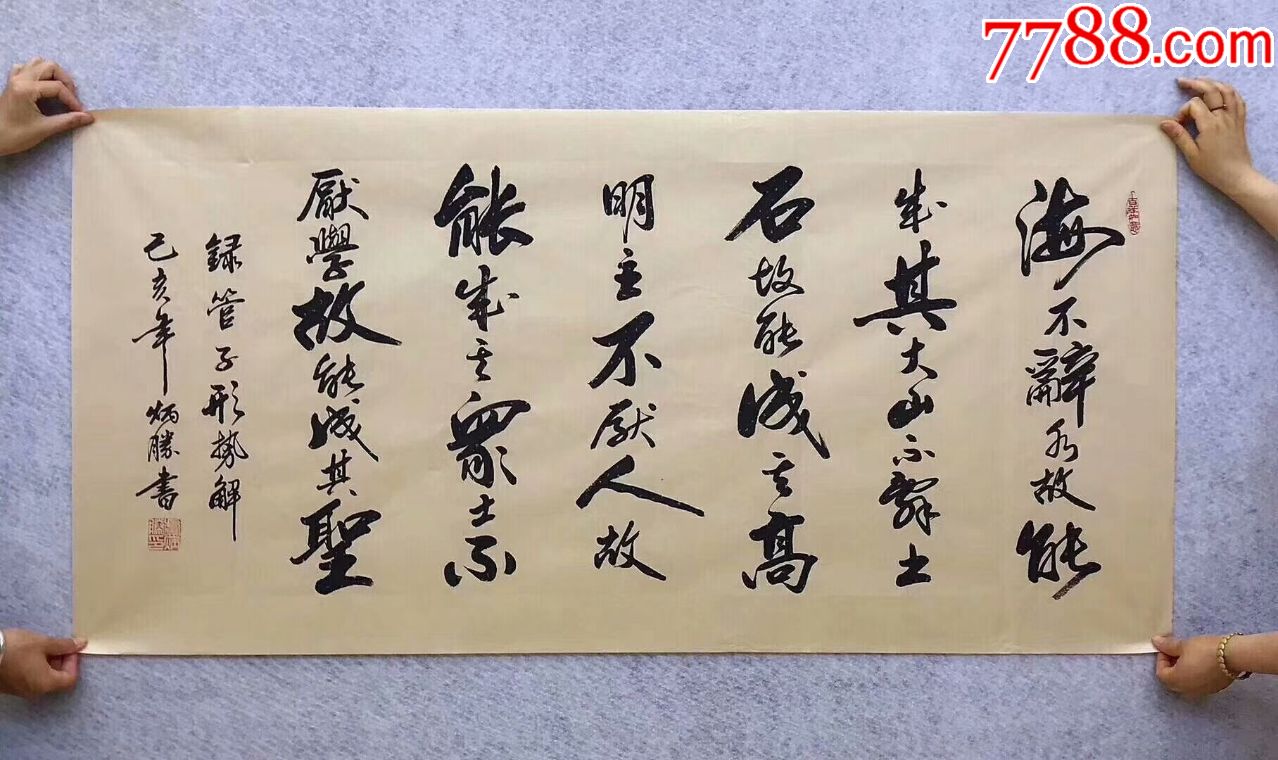 7788.com
海不辭水故能
成其大山不辭土
石故能成其高
明主不厭人故
能成其眾士不
厭學故能成其聖
録管子形勢解
己亥年炳勝書